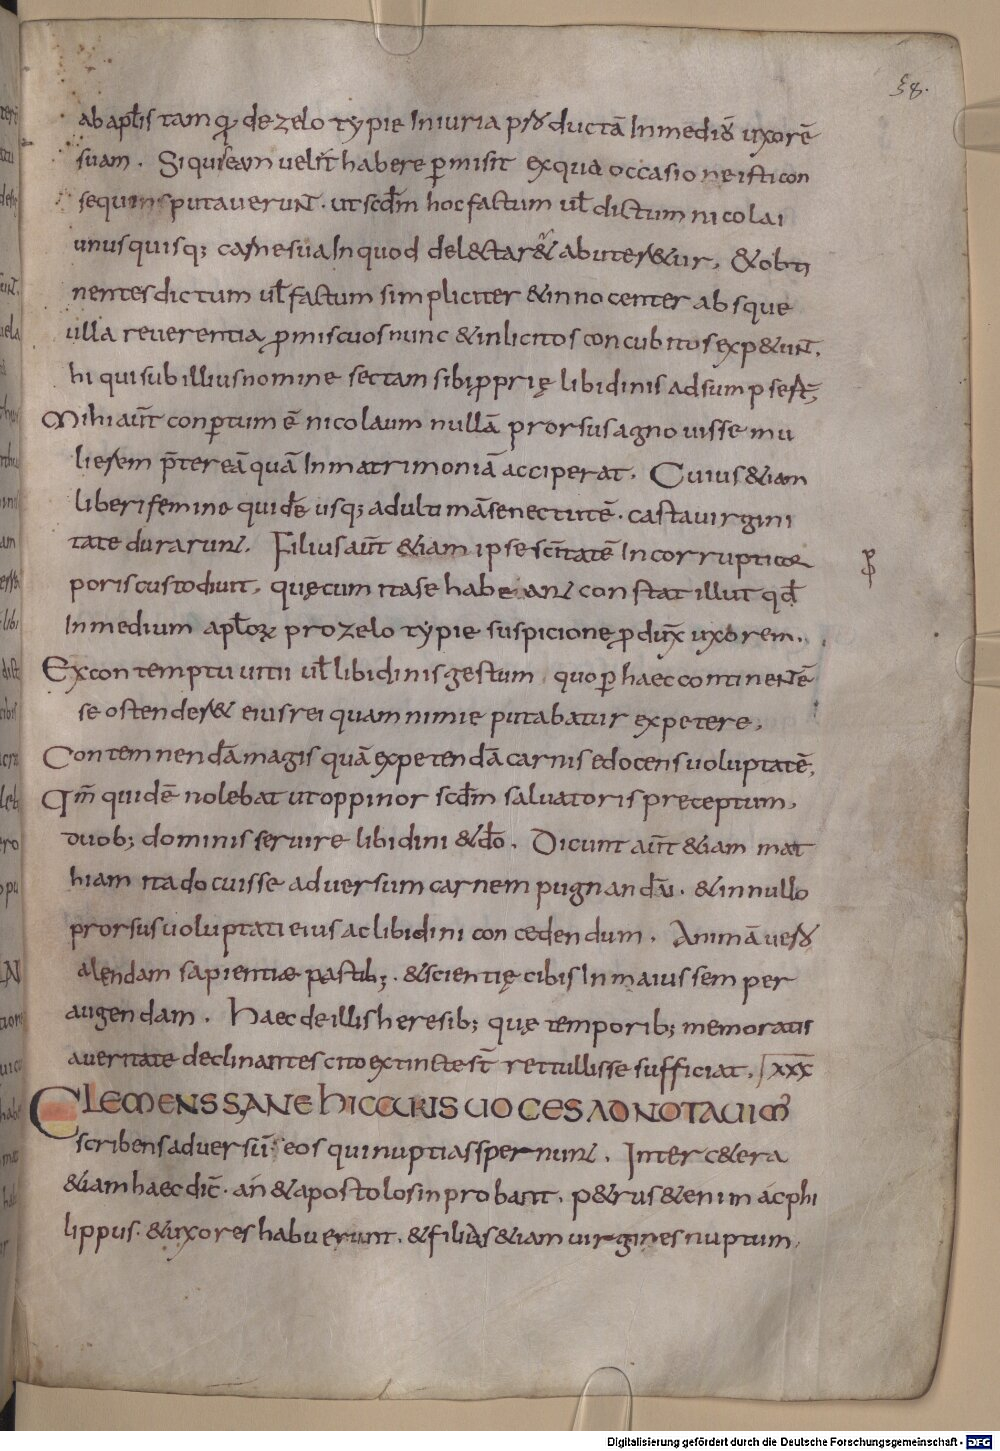 58.
ab apl̄is tamq̄ de zelo typie In iuria p̄ductā In mediū uxorē
suam. Siquis eam uelit habere p̄misit ex qua occasione isti con
sequins putauerunt. ut scd̄m hoc factum ul̄ dictum nicolai
unusquisq; carne sua In quod delectaret abuteretur, & obti
nentes dictum ul̄ factum simpliciter & innocenter absque
ulla reuerentia p̄miscuos nunc & inlicitos concubitos expetunt,
hi qui sub illius nomine sectam sibi p̄prię libidinis adsumpsert̄;
Mihi aūt conp̄tum ē nicolaum nullā prorsus agnouisse mu
lierem p̄ter eā quā In matrimoniā acciperat, Cuius &iam
liberi femine quidē usq; ad ultimā senectutē. casta uirgini
tate durarunt. Filius aūt &iam ipse scīt̄atē Incorrupti cor
poris custodiuit, quę cum ita se habeant constat illut qd̄
In medium apl̄or̄ pro zelo typie suspicione p̄dux̄ uxorem.
Ex contemptu uitii ul̄ libidinis gestum quo p̄ haec continentē
se ostenderet eius rei quam nimie putabatur expetere,
Contemnendā magis quā expetendā carnis edocens uoluptatē,
Qm̄ quidē nolebat ut oppinor scd̄m saluatoris preceptum,
duob; dominis seruire libidini & dō. Dicunt aūt &iam mat
hiam ita docuisse aduersum carnem pugnandā. & in nullo
prorsus uoluptati eius ac libidini concedendum. Animā uero
alendam sapientiae pastib;. & scientię cibis In maius semper
augendam. haec de illis heresib; quę temporib; memoratis
a ueritate declinantes cito extincte st̄ rettullisse sufficiat, XXX
CLEMENS SANE hICCUIUS UOCES ADNOTAUIM'
scribens aduersū eos qui nuptias spernunt. Inter cetera
&iam haec dic̄. an & apostolos inprobant. petrus &enim ac phi
lippus. & uxores habuerunt. & filias &iam uirgines nuptum,
Digitalisierung gefördert durch die Deutsche Forschungsgemeinschaft - DFG